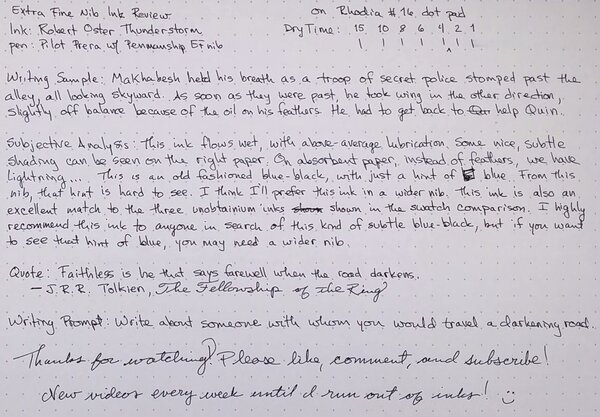 Extra Fine Nib Ink Review on Rhodia #16 dot pad
Ink: Robert Oster Thunderstorm Dry Time: 15 10 8 6 4 2 1
pen: Pilot Prera w/ Penmanship EF nib
Writing Sample: Makhabesh held his breath as a troop of secret police stomped past the
alley, all looking skyward. As soon as they were past, he took wing in the other direction,
slightly off balance because of the oil on his feathers. He had to get back to help Quin.
Subjective Analysis: This ink flows wet, with above-average lubrication. Some nice, subtle
shading can be seen on the right paper. On absorbent paper, instead of feathers, we have
lightning... This is an old fashioned blue-black, with just a hint of blue. From this
nib, that hint is hard to see. I think I'll prefer this ink in a wider nib. This ink is also an
excellent match to the three unobtainium inks shown in the swatch comparison. I highly
recommend this ink to anyone in search of this kind of subtle blue-black, but if you want
to see that hint of blue, you may need a wider nib.
Quote: Faithless is he that says farewell when the road darkens.
— J.R.R. Tolkien, The Fellowship of the Ring
Writing Prompt: Write about someone with whom you would travel a darkening road.
Thanks for watching! Please like, comment, and subscribe!
New videos every week until I run out of inks! :)